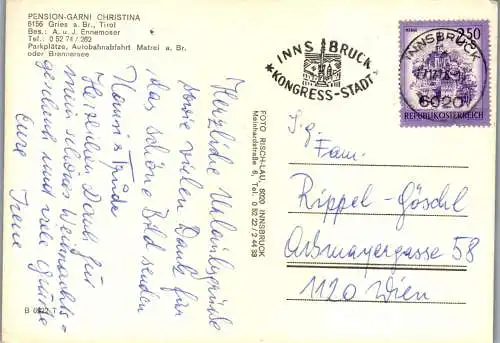 PENSION-GARNI CHRISTINA
6156 Gries a. Br., Tirol
Bes.: A. u. J. Ennemoser
Tel.: 0 52 74 / 262
Parkplätze, Autobahnabfahrt Matrei a. Br.
oder Brennersee
Herzliche Urlaubsgrüße
sowie vielen Dank für
das schöne Bild senden
Hanni & Trude
Herzlichen Dank für
mein schönes Weihnachts=
geschenk und viele Grüße
Eure Irene
B 0822 T
FOTO RISCH-LAU, 6020 INNSBRUCK
Meinhardstraße 6, Tel. 0 52 22 / 2 44 39
INNSBRUCK
KONGRESS-STADT
INNSBRUCK
6020
2.50
REPUBLIK ÖSTERREICH
Fam.
Rippel-Göschl
Arbmayergasse 58
1120 Wien